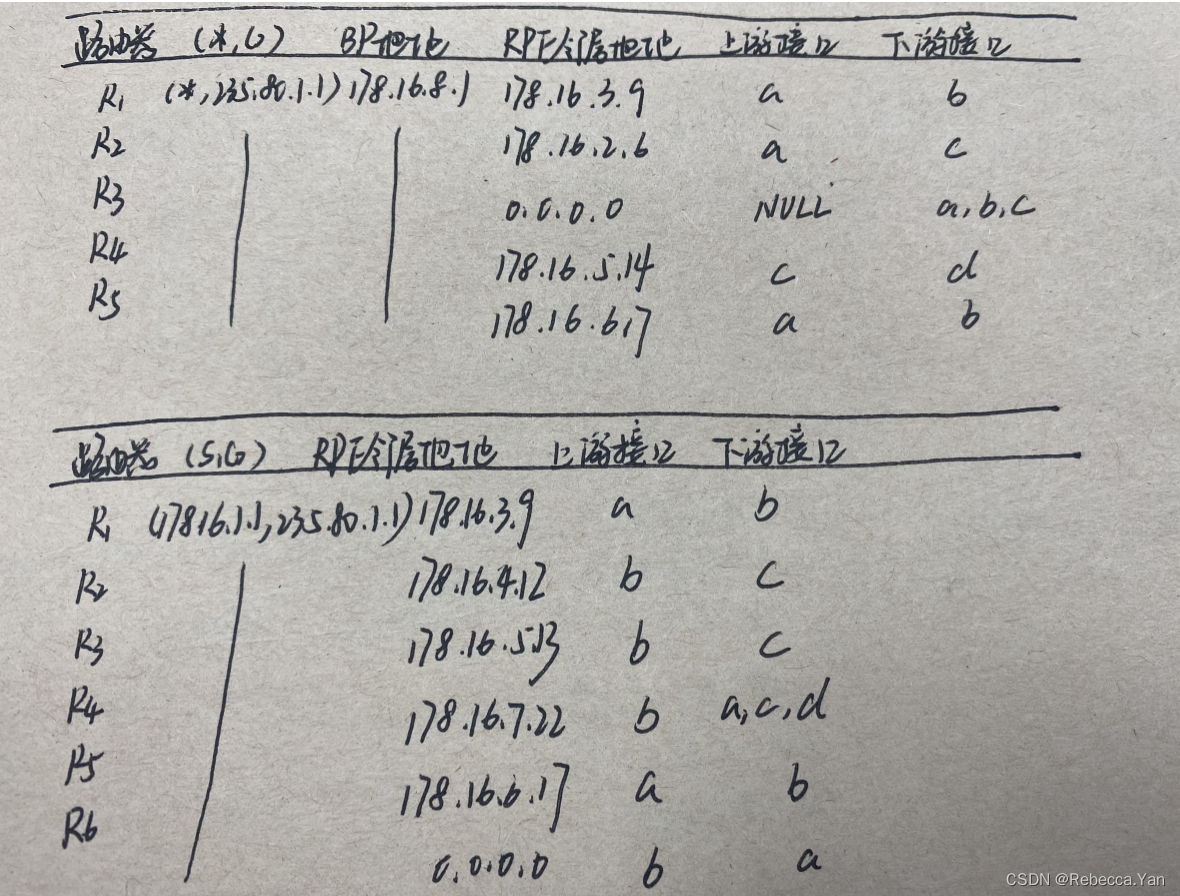 路由器 (*,G) BP地址 RPF邻居地址 上游接口 下游接口
R1 (*,235.80.1.1) 178.16.8.1 178.16.3.9 a b
R2 178.16.2.6 a c
R3 0.0.0.0 NULL a,b,c
R4 178.16.5.14 c d
R5 178.16.6.17 a b
路由器 (S,G) RPF邻居地址 上游接口 下游接口
R1 (178.16.1.1,235.80.1.1) 178.16.3.9 a b
R2 178.16.4.12 b c
R3 178.16.5.13 b c
R4 178.16.7.22 b a,c,d
R5 178.16.6.17 a b
R6 0.0.0.0 b a
CSDN @Rebecca.Yan